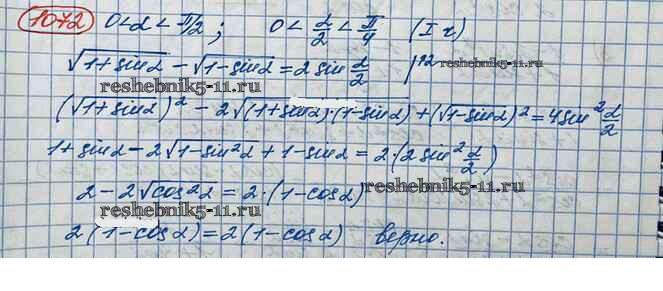 1072 0<α<π/2; 0<α/2<π/4 (I ч)
√1+sinα − √1−sinα = 2 sin α/2 |^2
reshebnik5-11.ru
reshebnik5-11.ru
(√1+sinα)² − 2√(1+sinα)·(1−sinα) + (√1−sinα)² = 4 sin² α/2
1+sinα − 2√1−sin²α + 1−sinα = 2·(2 sin² α/2)
2 − 2√cos²α = 2·(1−cosα)
reshebnik5-11.ru
reshebnik5-11.ru
2(1−cosα) = 2(1−cosα) верно.